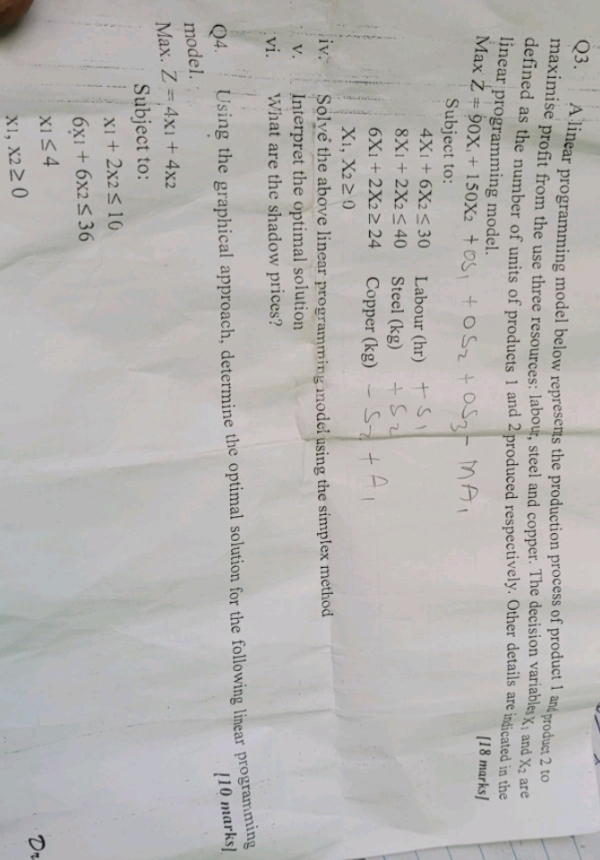 Q3. A linear programming model below represents the production process of product 1 and product 2 to
maximise profit from the use three resources: labour, steel and copper. The decision variables X1 and X2 are
defined as the number of units of products 1 and 2 produced respectively. Other details are indicated in the
linear programming model. [18 marks]
Max Z = 90X1 + 150X2 + 0S1 + 0S2 + 0S3 - MA1
Subject to:
4X1 + 6X2 ≤ 30 Labour (hr) + S1
8X1 + 2X2 ≤ 40 Steel (kg) + S2
6X1 + 2X2 ≥ 24 Copper (kg) - S2 + A1
X1, X2 ≥ 0
iv. Solve the above linear programming model using the simplex method
v. Interpret the optimal solution
vi. What are the shadow prices?
Q4. Using the graphical approach, determine the optimal solution for the following linear programming
model. [10 marks]
Max. Z = 4x1 + 4x2
Subject to:
x1 + 2x2 ≤ 10
6x1 + 6x2 ≤ 36
x1 ≤ 4
x1, x2 ≥ 0